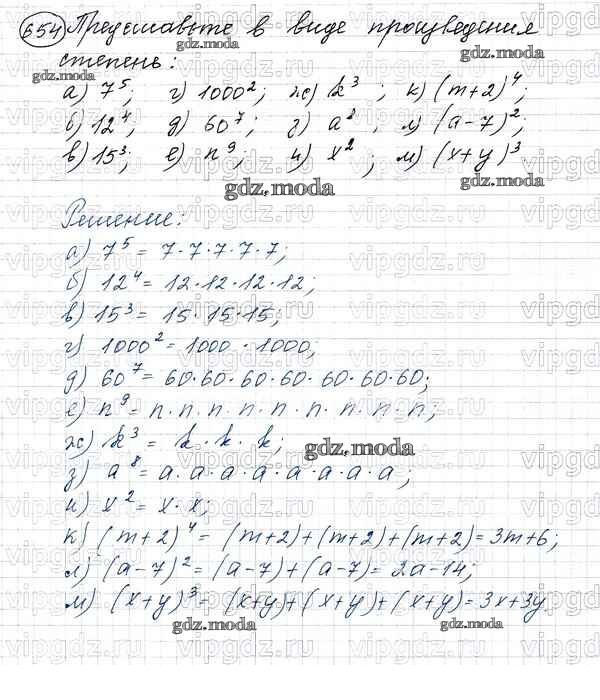 654 Представьте в виде произведения
gdz.moda
степень:
gdz.moda
а) 7⁵; г) 1000²; ж) k³; к) (m+2)⁴;
б) 12⁴; д) 60⁷; з) a⁸; л) (a-7)²;
в) 15³; е) n⁹; и) x²; м) (x+y)³
gdz.moda
gdz.moda
Решение:
а) 7⁵ = 7·7·7·7·7;
б) 12⁴ = 12·12·12·12;
в) 15³ = 15·15·15;
г) 1000² = 1000·1000;
д) 60⁷ = 60·60·60·60·60·60·60;
е) n⁹ = n·n·n·n·n·n·n·n·n;
ж) k³ = k·k·k;
gdz.moda
з) a⁸ = a·a·a·a·a·a·a·a;
и) x² = x·x;
к) (m+2)⁴ = (m+2)+(m+2)+(m+2) = 3m+6;
л) (a-7)² = (a-7)+(a-7) = 2a-14;
м) (x+y)³ = (x+y)+(x+y)+(x+y) = 3x+3y
gdz.moda
gdz.moda
vipgdz.ru